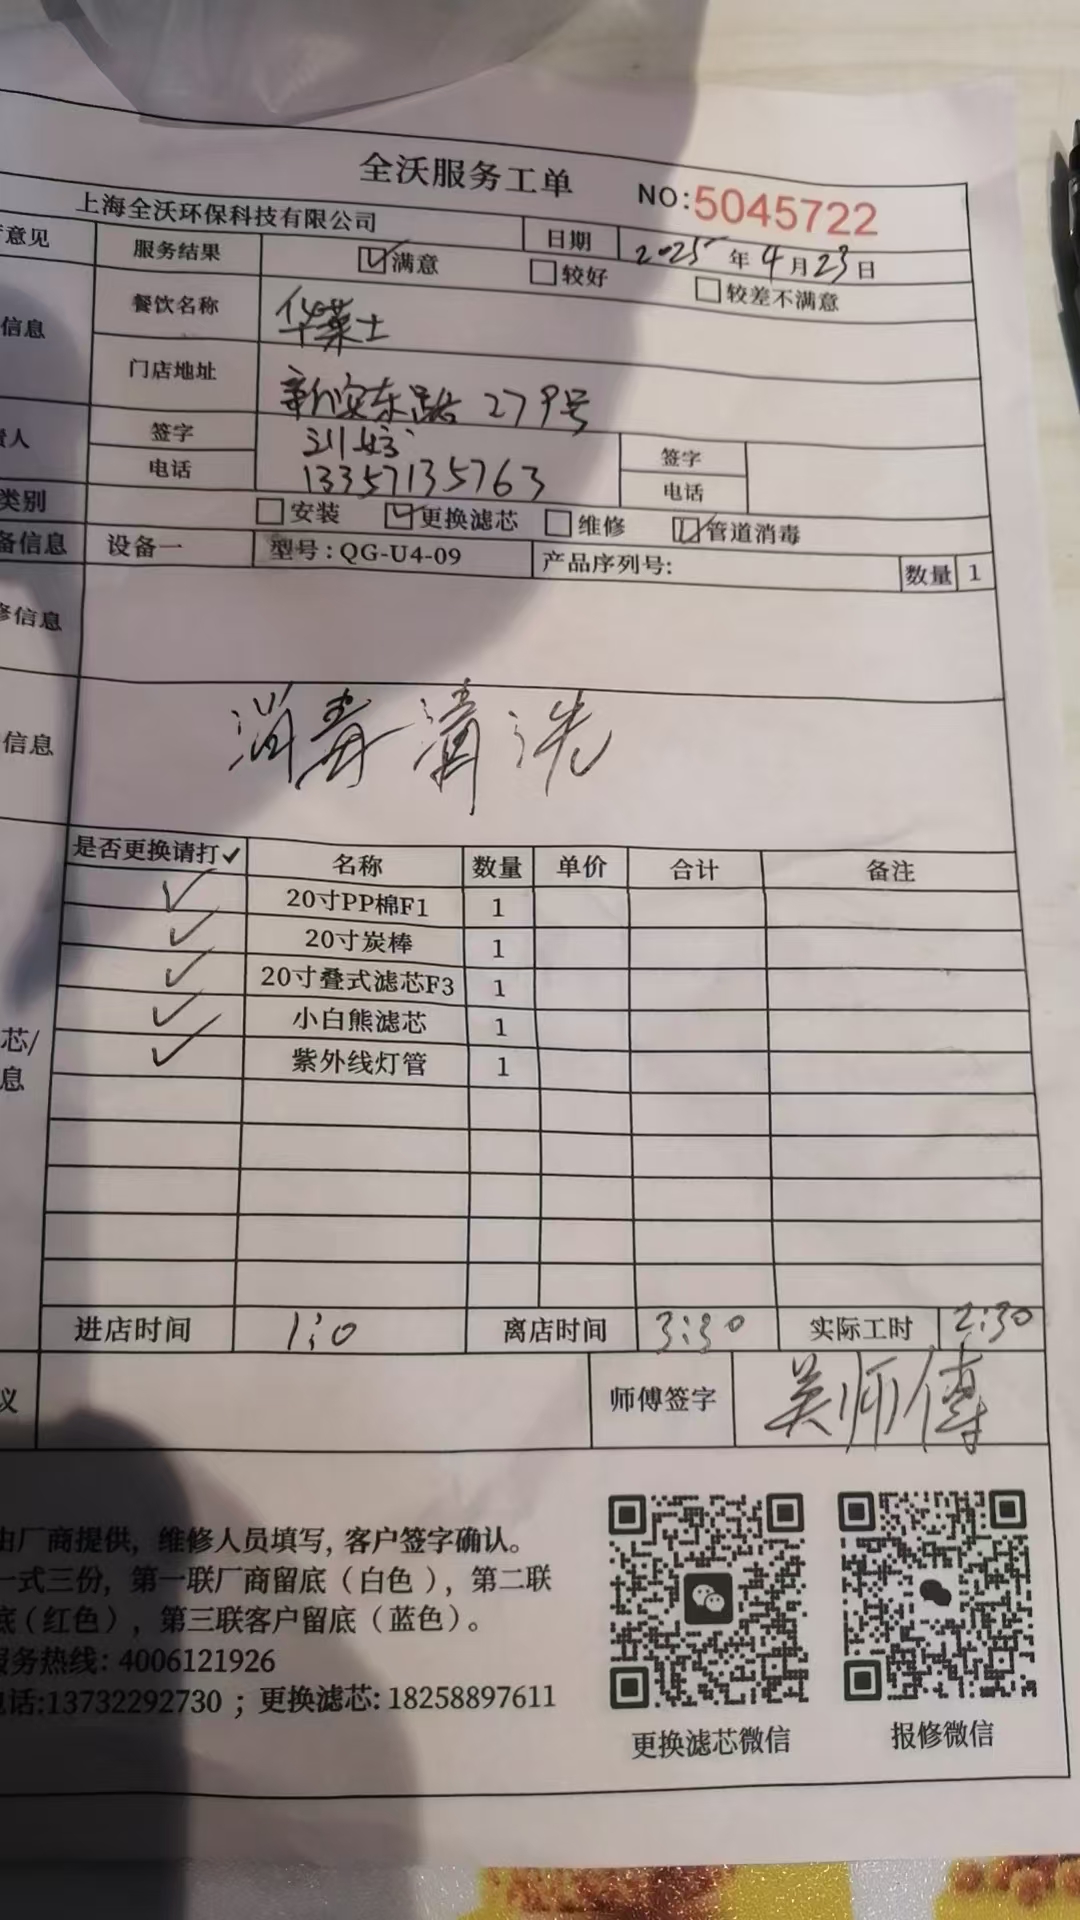 全沃服务工单 NO:5045722
上海全沃环保科技有限公司 日期 2025年4月23日
意见 服务结果 满意 较好 较差不满意
信息 餐饮名称 华莱士
门店地址 新安东路 279号
人 签字 签字
电话 13357135763 电话
类别 安装 更换滤芯 维修 管道消毒
备信息 设备一 型号:QG-U4-09 产品序列号: 数量 1
修信息
信息 消毒清洗
是否更换请打✓ 名称 数量 单价 合计 备注
✓ 20寸PP棉F1 1
✓ 20寸炭棒 1
✓ 20寸叠式滤芯F3 1
✓ 小白熊滤芯 1
✓ 紫外线灯管 1
芯/
息
进店时间 1:0 离店时间 3:30 实际工时 2:30
议 师傅签字 吴师傅
由厂商提供，维修人员填写，客户签字确认。
一式三份，第一联厂商留底（白色），第二联
底（红色），第三联客户留底（蓝色）。
服务热线: 4006121926
电话:13732292730 ；更换滤芯: 18258897611
更换滤芯微信 报修微信